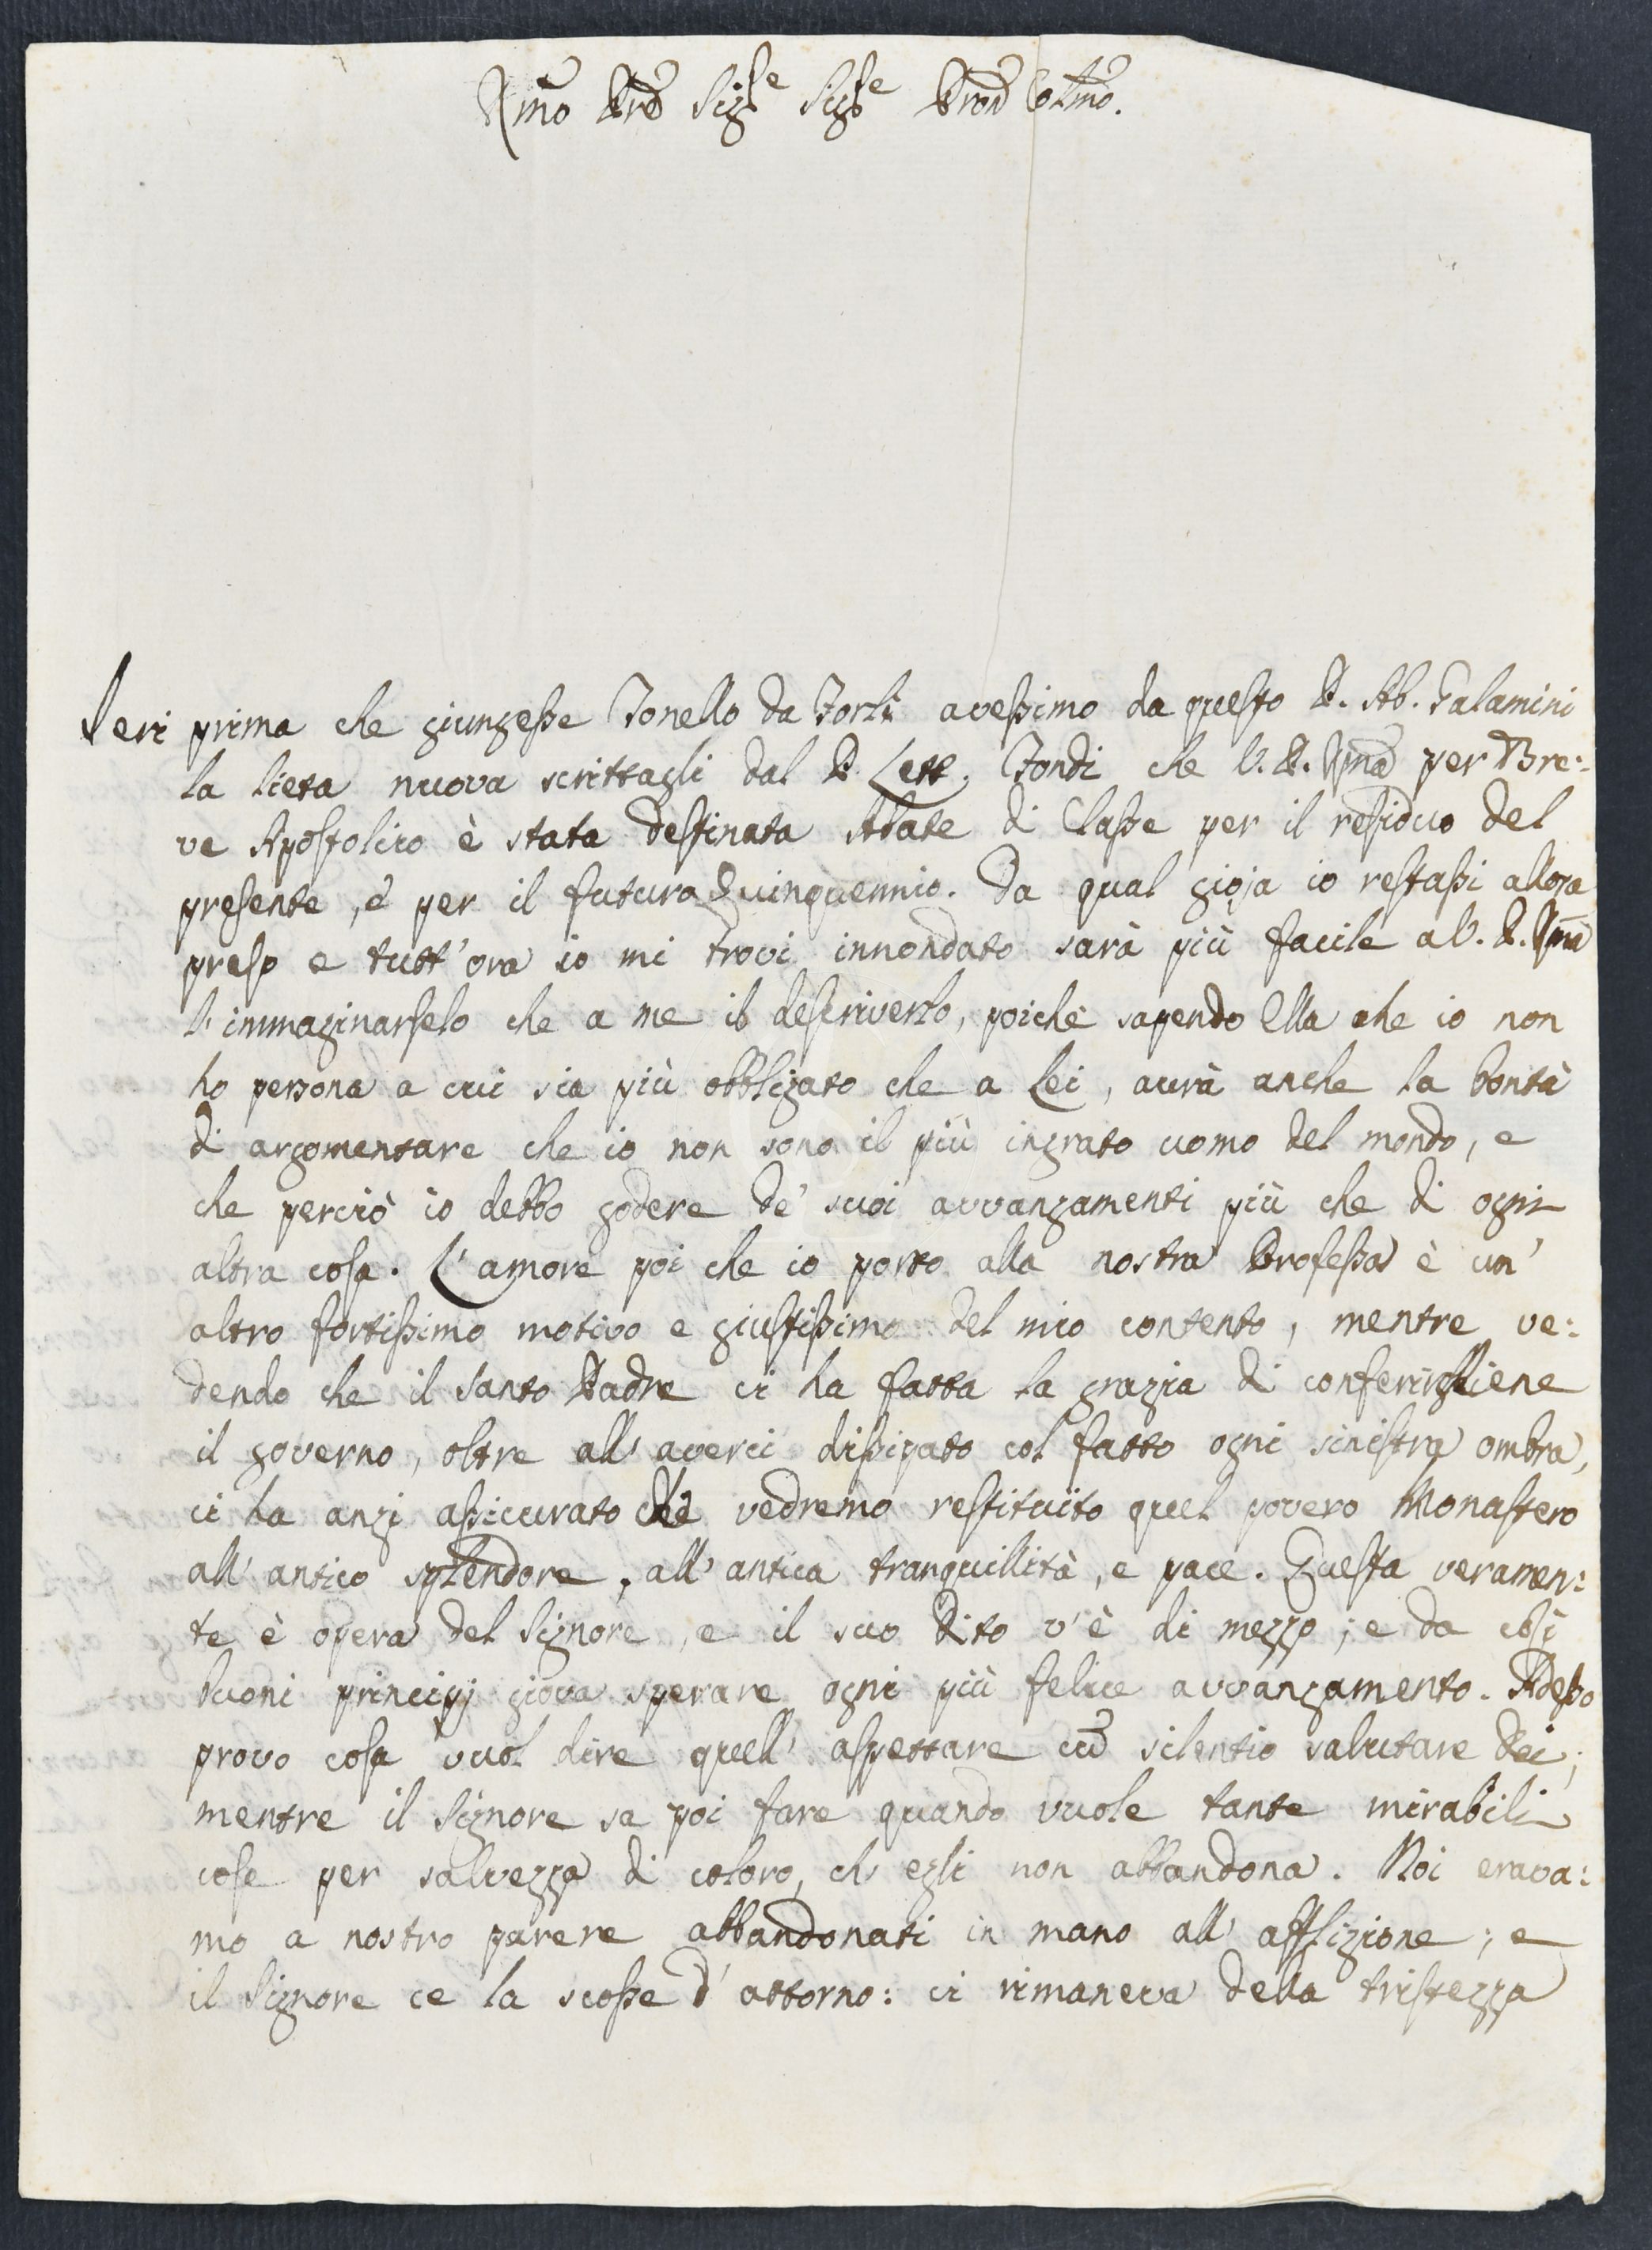 Rmo Pre Sigre Sigre Pron Colmo.
Ieri prima che giungesse Tonello da Forlì avessimo da questo P. Ab. Galamini
la lieta nuova scrittagli dal P. Lett. Fondi che V. P. Rma per Bre:
ve Apostolico è stata destinata Abate di Classe per il residuo del
presente, e per il futuro Quinquennio. Da qual gioja io restassi allora
preso e tutt'ora io mi trovi innondato sarà più facile a V. P. Rma
l'immaginarselo che a me il descriverlo, poichè sapendo Ella che io non
ho persona a cui sia più obbligato che a Lei, avrà anche la bontà
di argomentare che io non sono il più ingrato uomo del mondo, e
che perciò io debbo godere de' suoi avvanzamenti più che di ogni
altra cosa. L'amore poi che io porto alla nostra Professa è un'
altro fortissimo motivo e giustissimo del mio contento, mentre ve:
dendo che il Santo Padre ci ha fatta la grazia di conferirgliene
il governo, oltre all'averci dissipato col fatto ogni sinistra ombra,
ci ha anzi assicurato che vedremo restituito quel povero Monastero
all'antico splendore, all'antica tranquillità, e pace. Questa veramen:
te è opera del Signore, e il suo Dito v'è di mezzo; e da così
buoni principj giova sperare ogni più felice avvanzamento. Adesso
provo cosa vuol dire quell'aspettare cū silentio salutare Dei;
mentre il Signore sa poi fare quando vuole tante mirabili
cose per salvezza di coloro, ch'egli non abbandona. Noi erava:
mo a nostro parere abbandonati in mano all'afflizione; e
il Signore ce la scosse d'attorno: ci rimaneva della tristezza